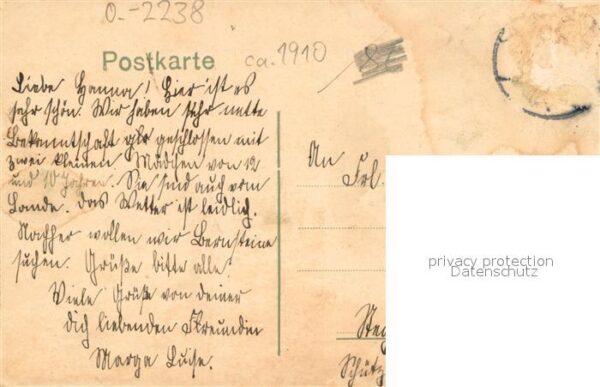 0.-2238
Postkarte
ca. 1910
Liebe Hanna! Hier ist es
sehr schön. Wir haben sehr nette
Bekanntschaft geschlossen mit
zwei kleinen Mädchen von 12
und 10 Jahren. Sie sind auch vom
Lande. Das Wetter ist leidlich.
Nachher wollen wir Bernsteine
suchen. Grüße bitte alle.
Viele Grüße von deiner
dich liebenden Freundin
Marga Luise.
An
Frl.
privacy protection
Datenschutz